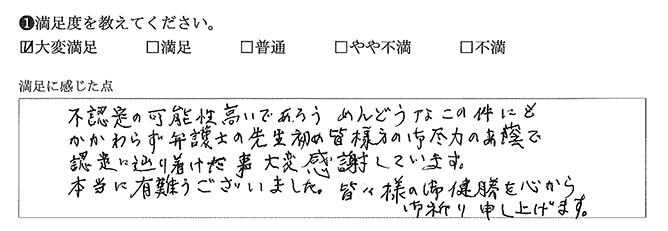 ❶満足度を教えてください。
☑大変満足 □満足 □普通 □やや不満 □不満
満足に感じた点
不認定の可能性高いであろう めんどうなこの件にも
かかわらず弁護士の先生初め皆様方の御尽力のお蔭で
認定に辿り着けた事 大変感謝しています。
本当に有難うございました。皆々様の御健勝を心から
御祈り申し上げます。